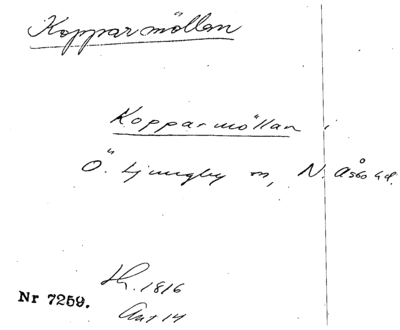 Kopparmöllan
Kopparmöllan
Ö. Ljungby sn, N. Åsbo hd.
Nr 7259.
Lh. 1816
Ant 14